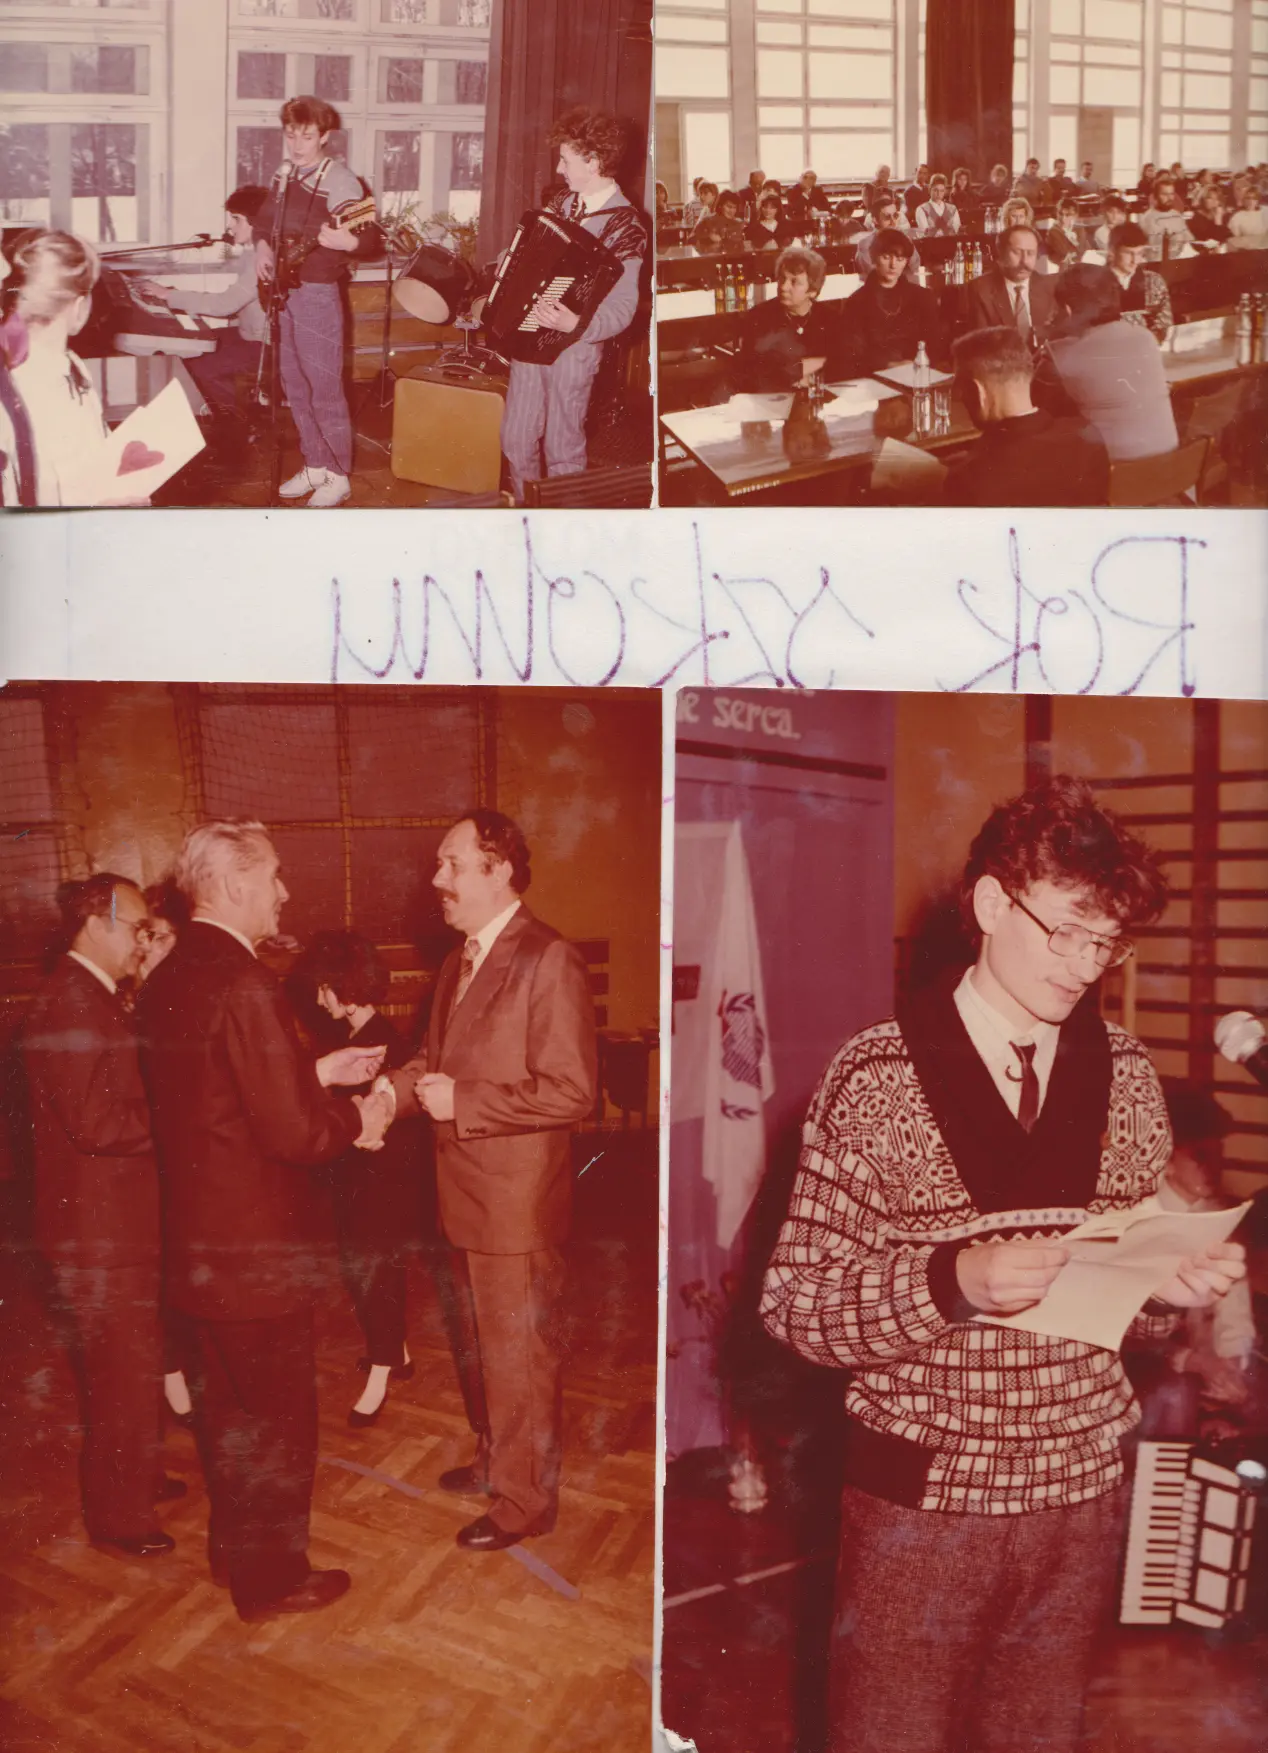 Rok szkolny
serca.